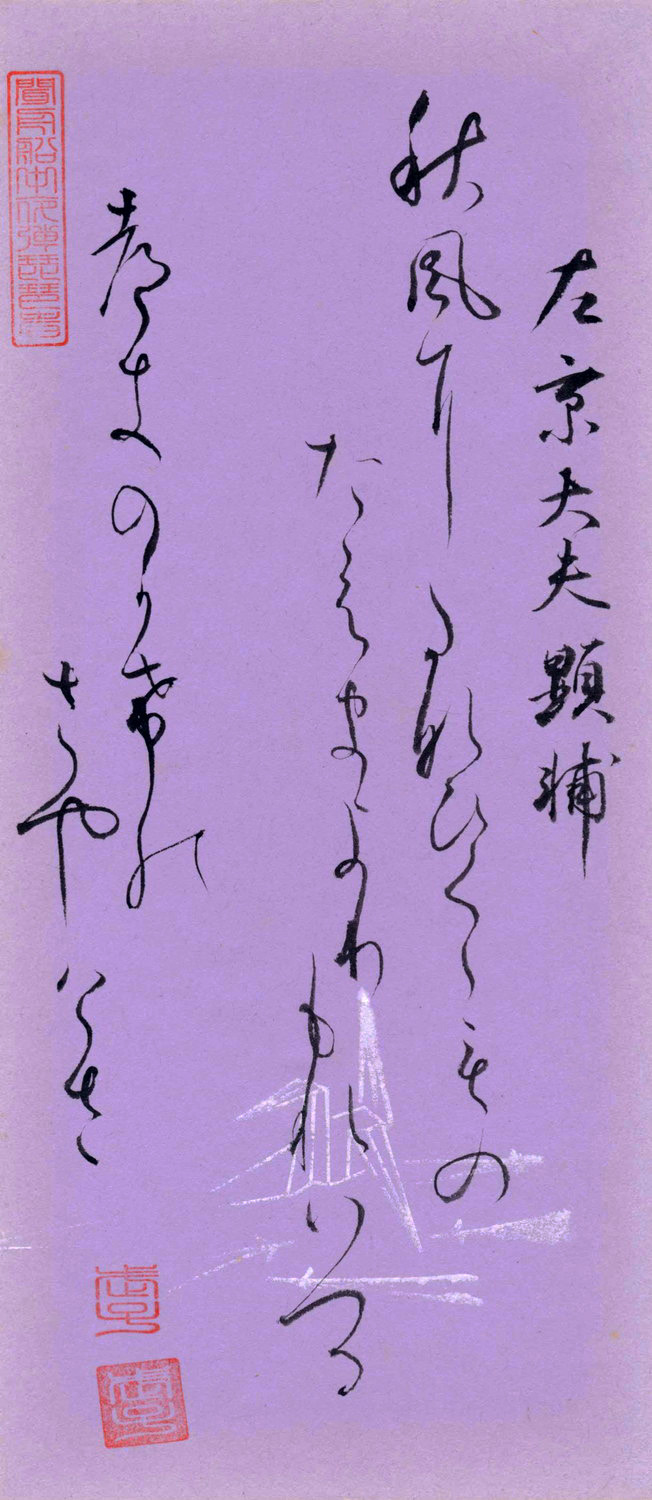 左京大夫顕輔
秋風にたなひくくもの
たえまよりもれいつる
つきのかけの
さやけさ